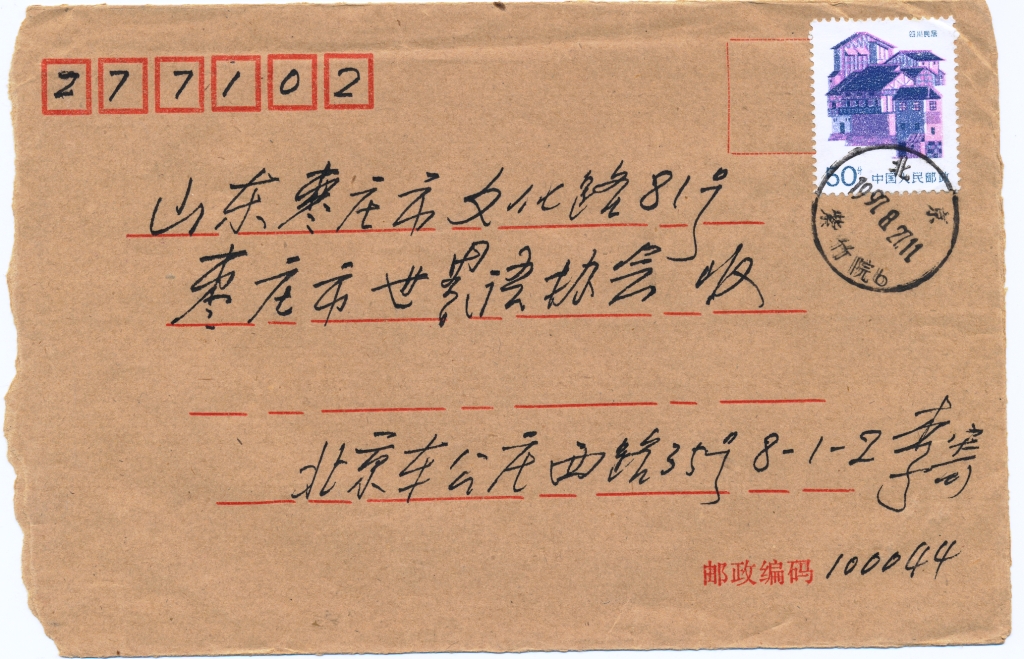 277102
四川民居
50分 中国人民邮政
北京
1997.8.27.11
紫竹院6
山东枣庄市文化路81号
枣庄市世界语协会 收
北京车公庄西路35号8-1-2 李寄
邮政编码 100044